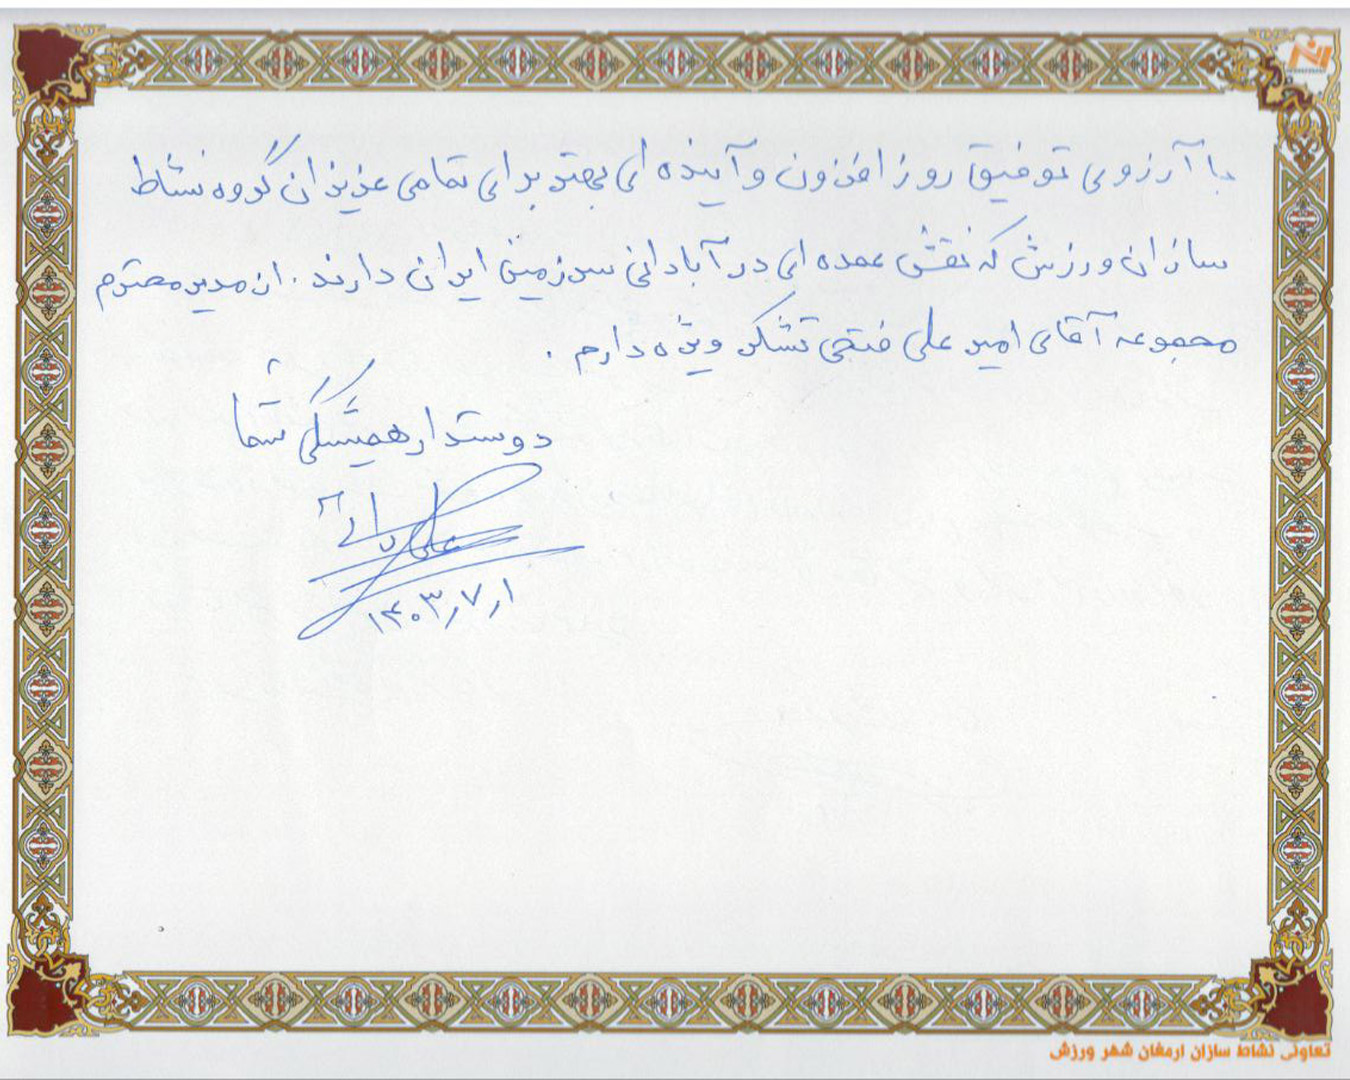 با آرزوی توفیق روز افزون و آینده ای بهتر برای تمامی عزیزان گروه نشاط
سازان ورزش که نقش عمده ای در آبادانی سرزمین ایران دارند. از مدیر محترم
مجموعه آقای امیر علی فتحی تشکر ویژه دارم.
دوستدار همیشگی شما
علی
۱۴۰۳٫۷٫۱
تعاونی نشاط سازان ارمغان شهر ورزش